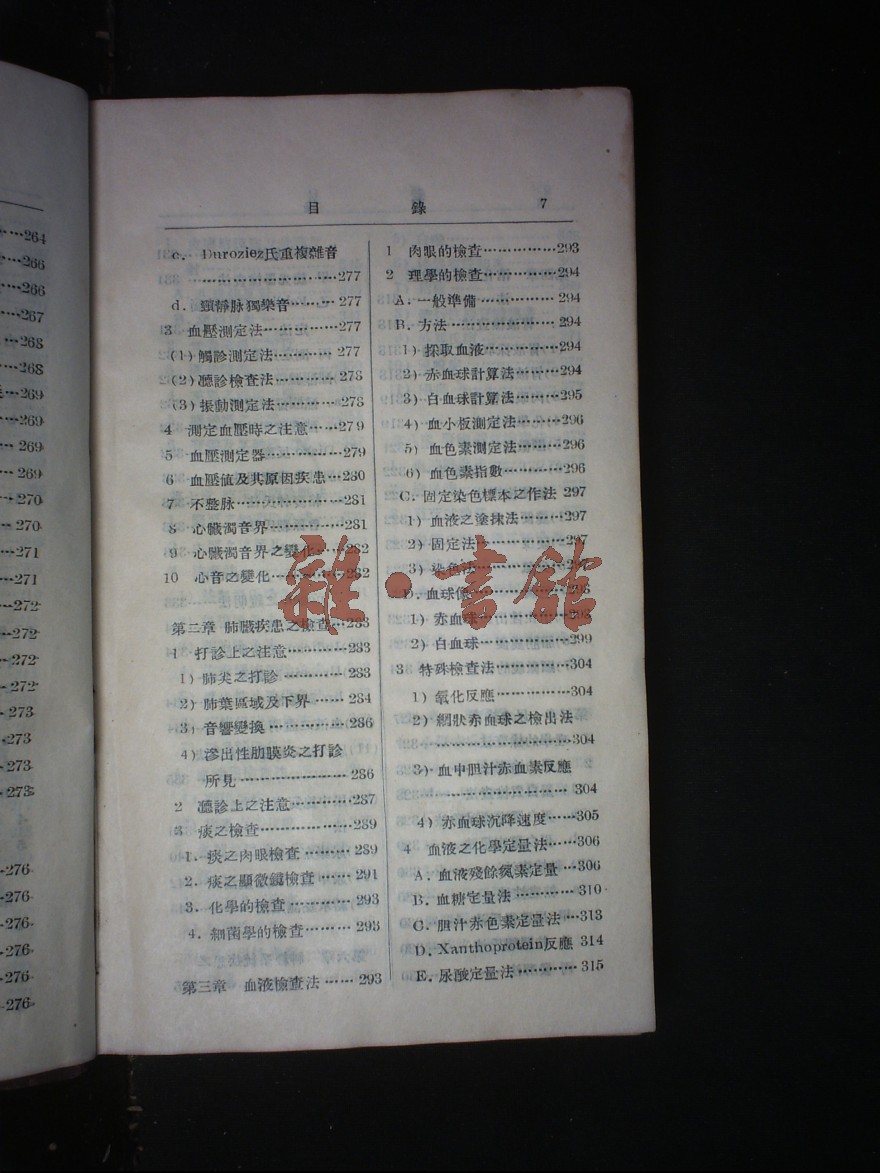 ·····264
···266
···266
···267
···268
···268
···269
···269
··· 269
··· 269
···270
··· 270
···271
···271
···272
···272
···272
···272
··· 273
···273
··· 273
··· 273
···276
···276
···276
···276
···276
···276
目 錄 7
c. Duroziez氏重複雜音
························277
d. 頸靜脉獨樂音········· 277
3 血壓測定法···············277
(1) 觸診測定法············ 277
(2) 聽診檢查法············ 278
(3) 振動測定法············278
4 測定血壓時之注意······279
5 血壓測定器···············279
6 血壓値及其原因疾患···280
7 不整脉·····················281
8 心臟濁音界···············281
9 心臟濁音界之變化······282
10 心音之變化···············282
第二章 肺臟疾患之檢查···283
1 打診上之注意············283
1) 肺尖之打診 ············ 283
2) 肺葉區域及下界 ······ 284
3) 音響變換 ··············· 286
4) 滲出性肋膜炎之打診
所見 ·················· 286
2 聽診上之注意············287
3 痰之檢查··················289
1. 痰之肉眼檢查 ········· 289
2. 痰之顯微鏡檢查 ······ 291
3. 化學的檢查 ············ 293
4. 細菌學的檢查 ········· 293
第三章 血液檢查法 ······ 293
1 肉眼的檢查···············293
2 理學的檢查···············294
A. 一般準備 ··············· 294
B. 方法 ····················· 294
1) 採取血液···············294
2) 赤血球計算法·········294
3) 白血球計算法·········295
4) 血小板測定法·········296
5) 血色素測定法·········296
6) 血色素指數············296
C. 固定染色標本之作法 297
1) 血液之塗抹法·········297
2) 固定法··················297
3) 染色法
D. 血球像··················298
1) 赤血球··················298
2) 白血球··················299
3 特殊檢查法···············304
1) 氧化反應···············304
2) 網狀赤血球之檢出法
························304
3) 血中胆汁赤血素反應
······················ 304
4) 赤血球沉降速度······305
4 血液之化學定量法······306
A. 血液殘餘氮素定量 ···306
B. 血糖定量法 ············310
C. 胆汁赤色素定量法 ···313
D. Xanthoprotein反應 314
E. 尿酸定量法 ············315
雜·書舘